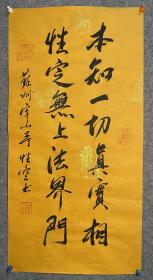 本知一切真實相
性定無上法界門
蘇州寒山寺性空书